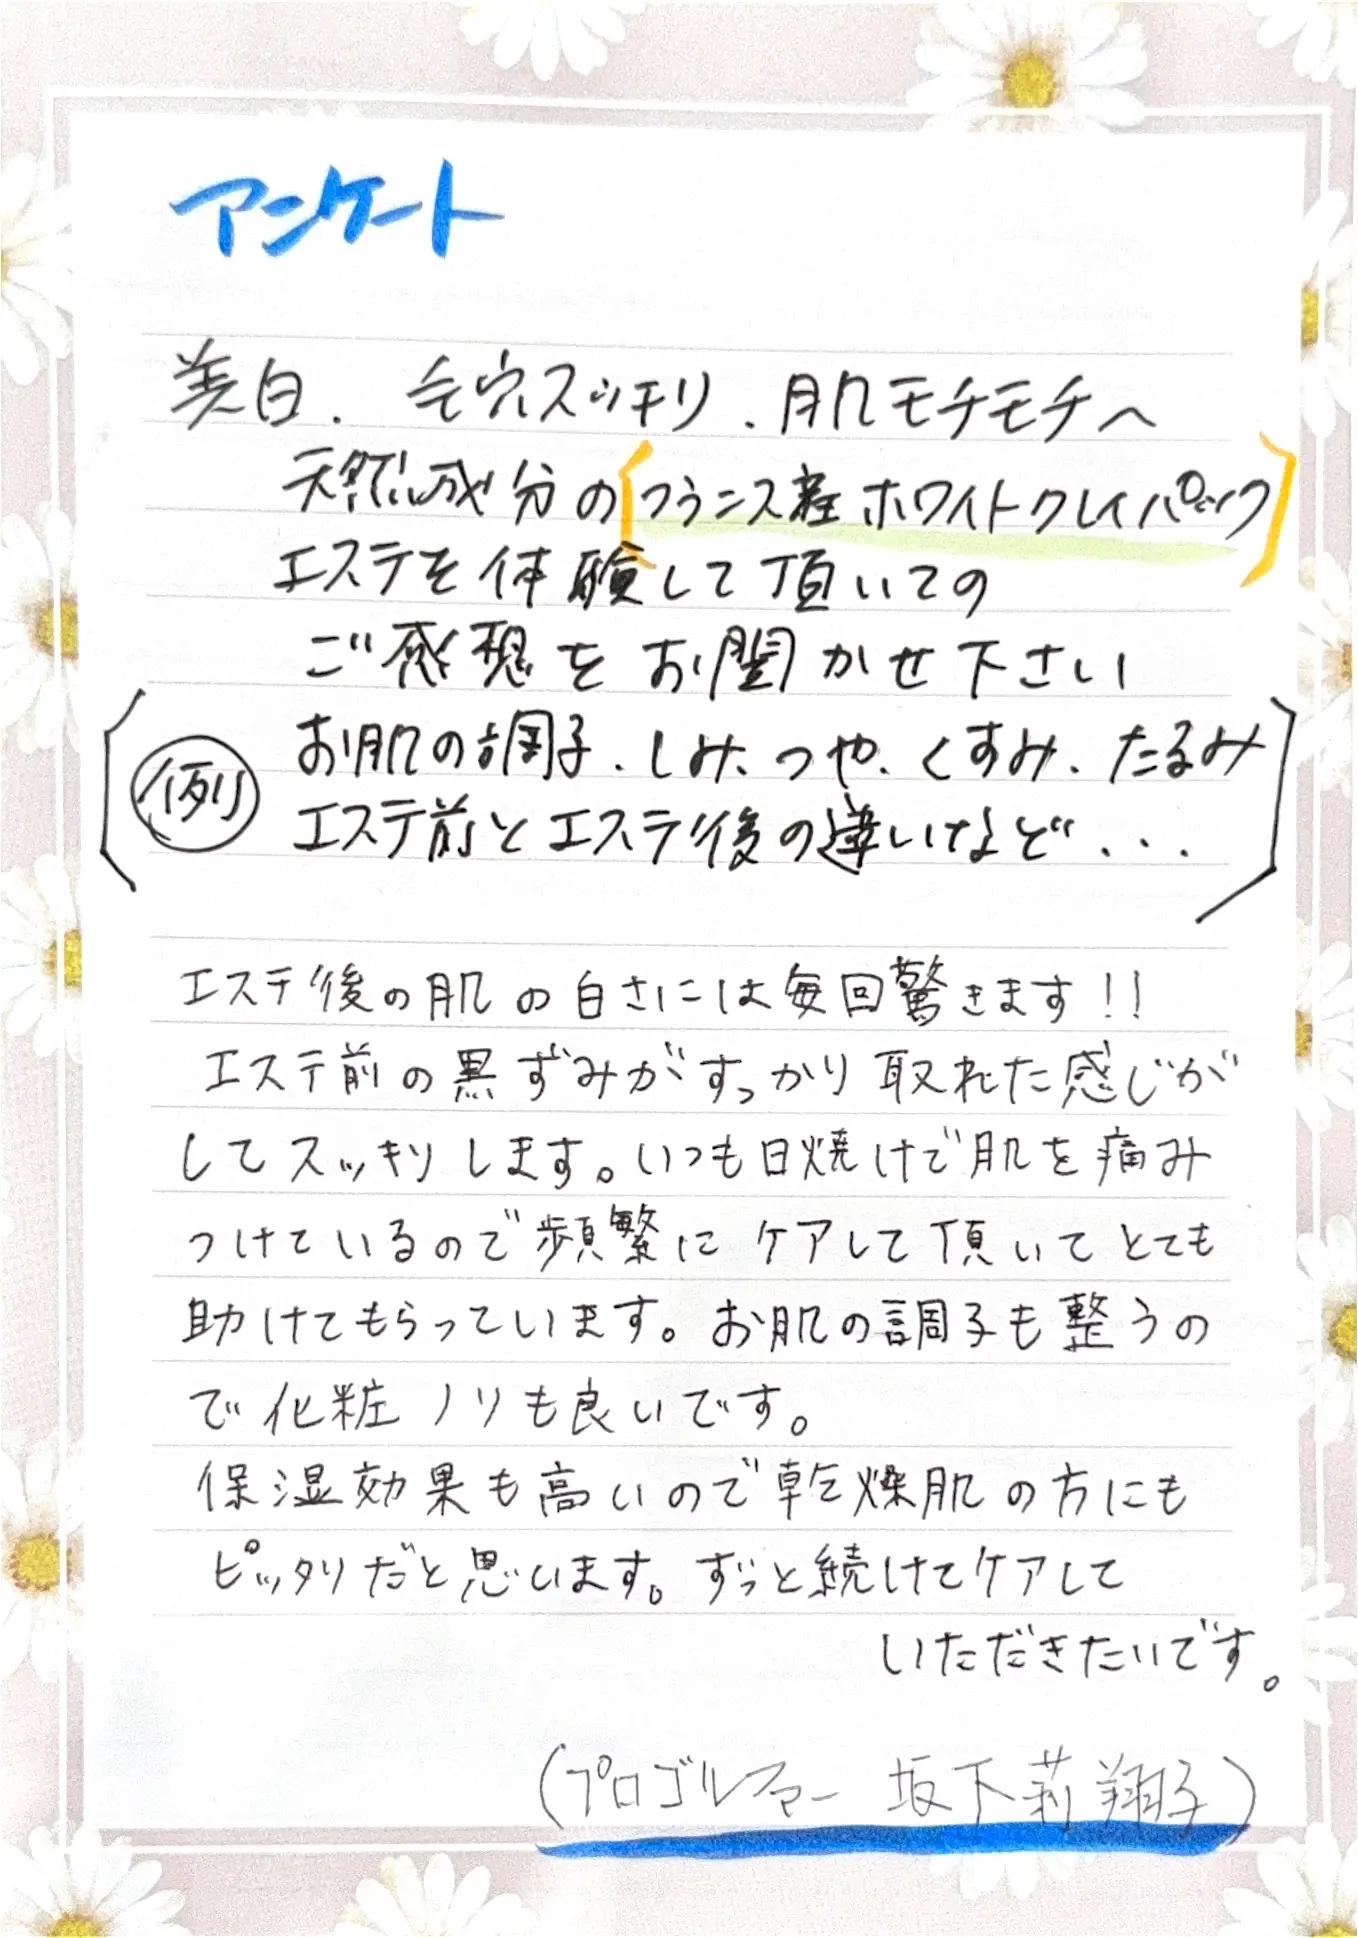 アンケート
美白．毛穴スッキリ．肌モチモチへ
天然成分の［フランス産ホワイトクレイパック］
エステを体験して頂いての
ご感想をお聞かせ下さい
（例 お肌の調子．しみ、つや、くすみ．たるみ
エステ前とエステ後の違いなど．．．）
エステ後の肌の白さには毎回驚きます！！
エステ前の黒ずみがすっかり取れた感じが
してスッキリします。いつも日焼けで肌を痛み
つけているので頻繁にケアして頂いてとても
助けてもらっています。お肌の調子も整うの
で化粧ノリも良いです。
保湿効果も高いので乾燥肌の方にも
ピッタリだと思います。ずっと続けてケアして
いただきたいです。
（プロゴルファー 坂下莉翔子）